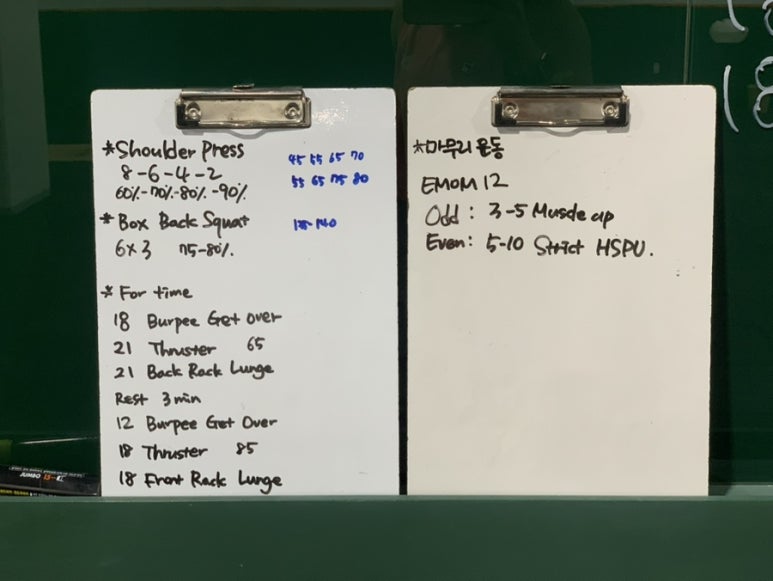 *Shoulder Press
8-6-4-2
60%-70%-80%-90%
45 55 65 70
55 65 75 80
*Box Back Squat
6x3 75-80%.
140
*For time
18 Burpee Get over
21 Thruster 65
21 Back Rack Lunge
Rest 3min
12 Burpee Get Over
18 Thruster 85
18 Front Rack Lunge
*마무리 운동
EMOM 12
Odd : 3-5 Muscle up
Even: 5-10 Strict HSPU.
18